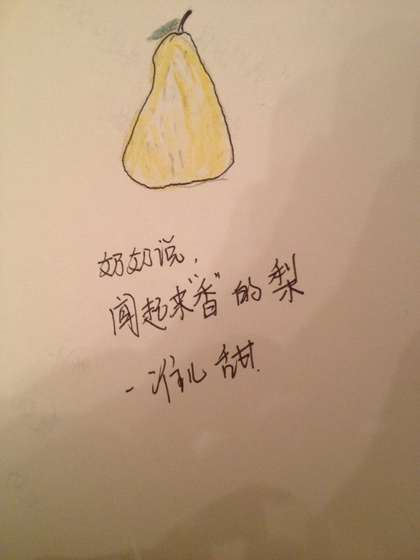 奶奶说，
闻起来"香"的梨
一准儿甜.